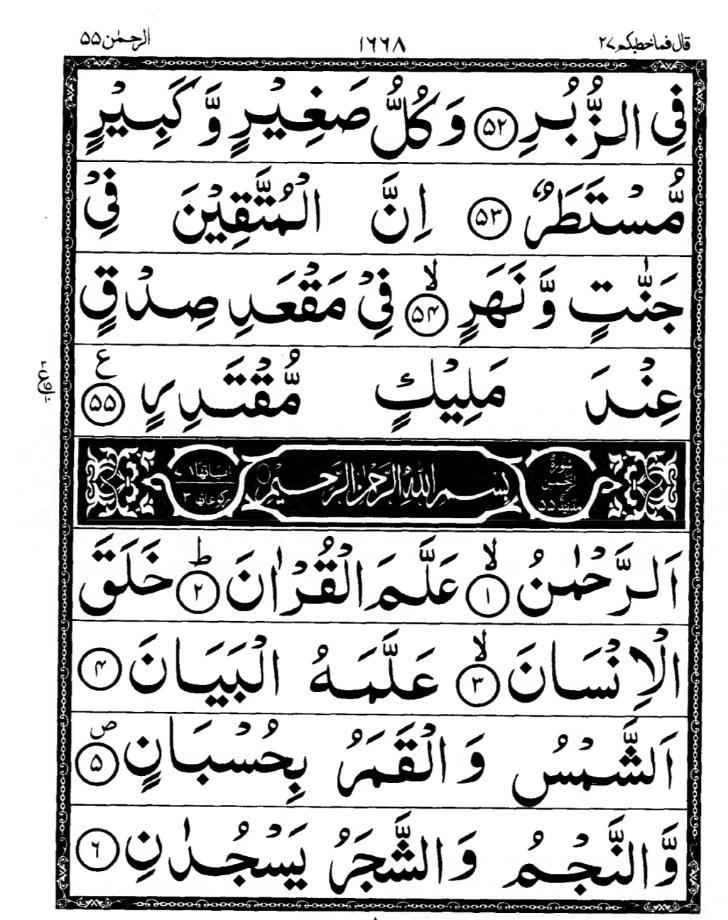 قال فماخطبكم ٢٧ ١٦٦٨ الرحمٰن ۵۵
فِي الزُّبُرِ ۝۵۲ وَكُلُّ صَغِيْرٍ وَّكَبِيْرٍ
مُّسْتَطَرٌ ۝۵۳ اِنَّ الْمُتَّقِيْنَ فِيْ
جَنّٰتٍ وَّنَهَرٍ ۙ۝۵۴ فِيْ مَقْعَدِ صِدْقٍ
عِنْدَ مَلِيْكٍ مُّقْتَدِرٍ ۝۵۵ ع
سُوْرَةُ الرحمٰن مدنية ۵۵ بِسْمِ اللهِ الرَّحْمٰنِ الرَّحِيْمِ رکوعاتها ۳
اَلرَّحْمٰنُ ۙ۝۱ عَلَّمَ الْقُرْاٰنَ ؕ۝۲ خَلَقَ
الْاِنْسَانَ ۙ۝۳ عَلَّمَهُ الْبَيَانَ ۝۴
اَلشَّمْسُ وَالْقَمَرُ بِحُسْبَانٍ ۪۝۵
وَّالنَّجْمُ وَالشَّجَرُ يَسْجُدٰنِ ۝۶